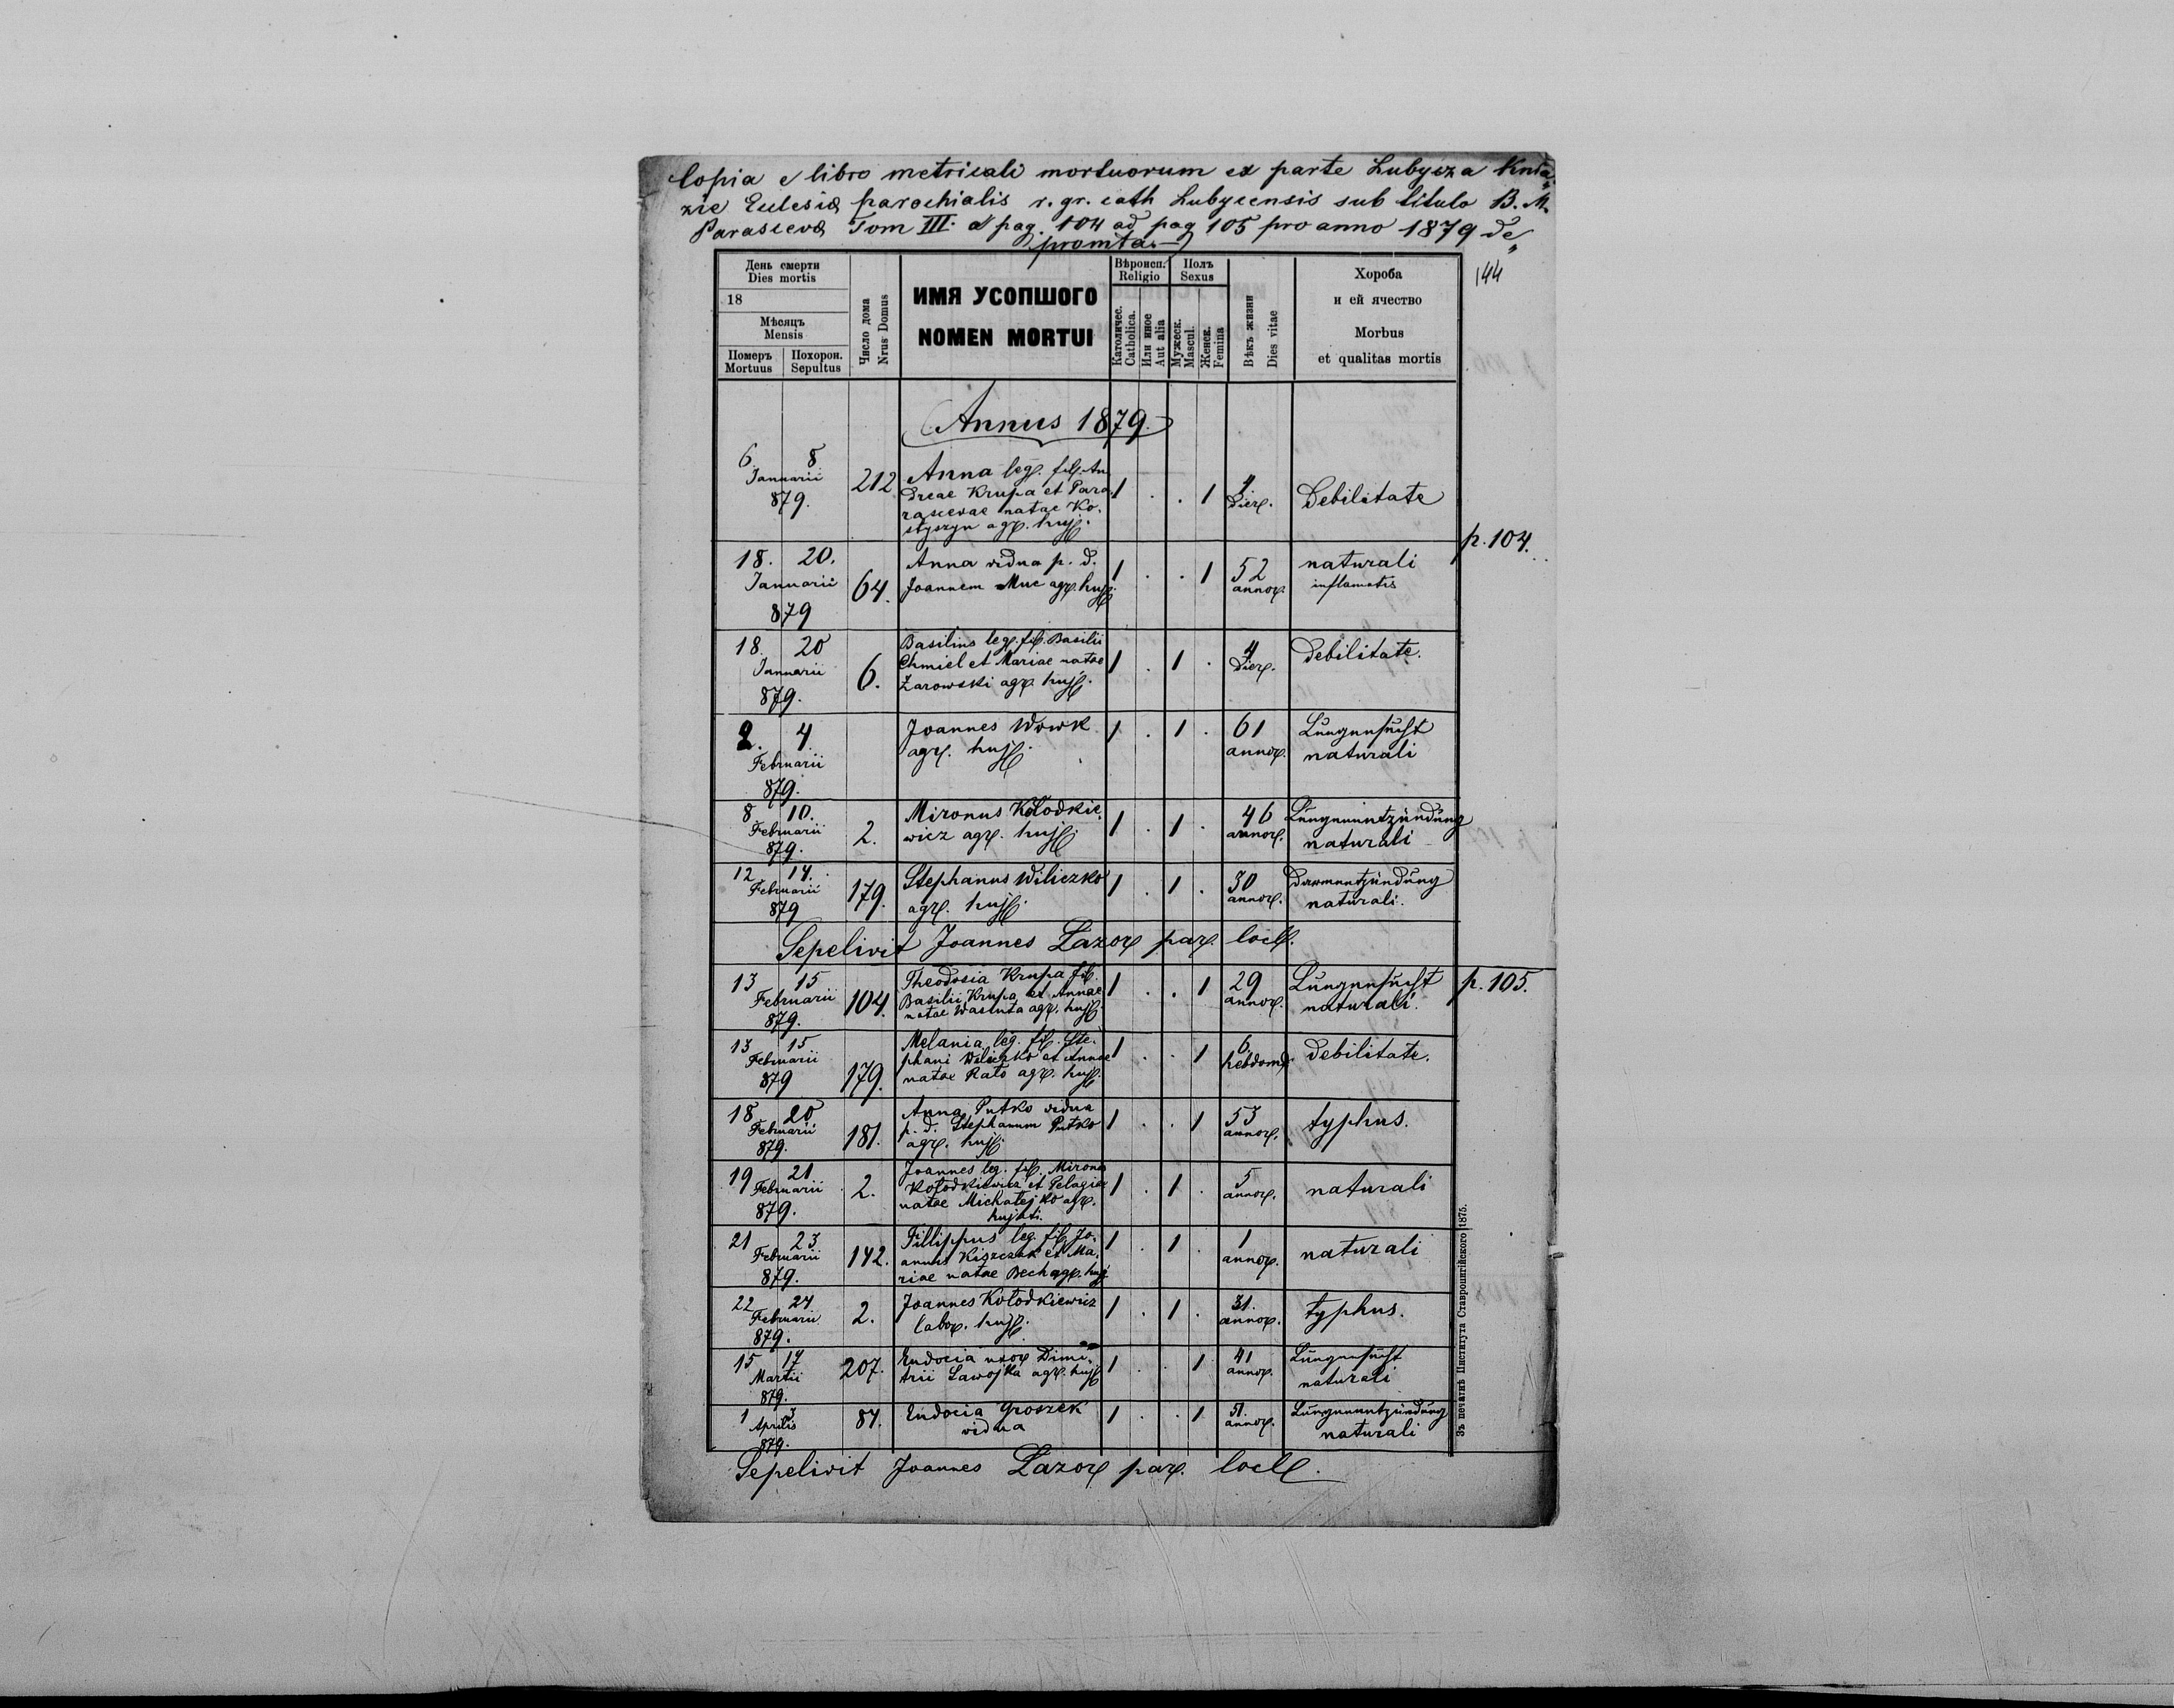 Copia e libro metricali mortuorum ex parte Lubycza Knia„
zie Eclesiæ parochialis r. gr. cath Lubycensis sub titulo B. M.
Parascevæ Tom III. a pag. 104 ad pag 105 pro anno 1879 de„
promta.—
144
День смерти
Dies mortis
18
Мѣсяцъ
Mensis
Померъ
Mortuus
Похорон.
Sepultus
Число дома
Nrus Domus
ИМЯ УСОПШОГО
NOMEN MORTUI
Вѣроисп.
Religio
Католичес.
Catholica.
Или иное
Aut alia
Полъ
Sexus
Мужеск.
Mascul.
Женск.
Femina
Вѣкъ жизни
Dies vitae
Хороба
и ей ячество
Morbus
et qualitas mortis
Annus 1879.
6. 8
Januarii
879.
212
Anna leg. fil. An
dreae Krupa et Para
rascevae natae Ko.
styszyn agr. huj.
1 . . 1
4
dier.
Debilitate
p. 104.
18. 20.
Januarii
879
64.
Anna vidua p. d.
Joannem Muc agr. huj.
1 . . 1
52
annor.
naturali
inflamatis
18. 20
Januarii
879.
6.
Basilius leg. fil. Basilii
Chmiel et Mariae natae
Żarowski agr. huj.
1 . 1 .
4
dier.
debilitate.
2. 4
Februarii
879.
Joannes Wowk
agr. huj.
1 . 1 .
61
annor.
Lungensucht
naturali
8 10.
Februarii
879.
2.
Mironus Kołodkie„
wicz agr. huj.
1 . 1 .
46
annor.
Lungenentzündung
naturali
12 14.
Februarii
879
179.
Stephanus Wiliczko
agr. huj.
1 . 1 .
30
annor.
Darmentzündung
naturali.
Sepelivit Joannes Lazor par. loci.
13 15
Februarii
879.
104.
Theodosia Krupa fil.
Basilii Krupa et Annae
natae Wasiuta agr. huj.
1 . . 1
29
annor.
Lungensucht
naturali.
p. 105.
13 15
Februarii
879
179.
Melania leg. fil. Ste.
phani Wiliczko et Annae
natae Rato agr. huj.
1 . . 1
6
hebdomd.
debilitate.
18 20
Februarii
879.
181.
Anna Putko vidua
p. d. Stephanum Putko
agr. huj.
1 . . 1
53
annor.
typhus.
19 21
Februarii
879.
2.
Joannes leg. fil. Mironis
Kołodkiewicz et Pelagiae
natae Michałejko agr.
hujati.
1 . 1 .
5
annor.
naturali
21 23
Februarii
879.
142.
Fillippus leg. fil. Jo.
annis Kiszczak et Ma.
riae natae Bech agr. huj
1 . 1 .
1
annor.
naturali
22 24
Februarii
879.
2.
Joannes Kołodkiewicz
labor. huj.
1 . 1 .
31.
annor.
typhus.
15 17
Martii
879.
207.
Eudocia uxor Dimi„
trii Ławojka agr. huj
1 . . 1
41
annor.
Lungensucht
naturali
1 3
Aprilis
879.
84.
Eudocia Groszek
vidua
1 . . 1
51.
annor.
Lungenentzündung
naturali
Sepelivit Joannes Lazor par. loci.
Зъ печатнѣ Института Ставропигійского 1875.